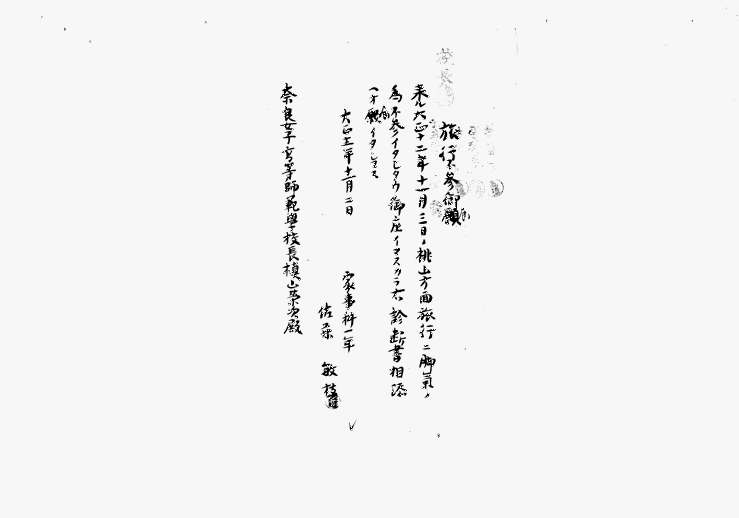 校長
旅行不参御願
来ル大正十二年十一月三日ノ桃山方面旅行ニ脚気ノ
為不参イタシタウ御座イマスカラ右診断書相添
ヘ御願イタシマス
大正十二年十一月二日
家事科一年
佐藤敏枝
奈良女子高等師範學校長槙山栄次殿